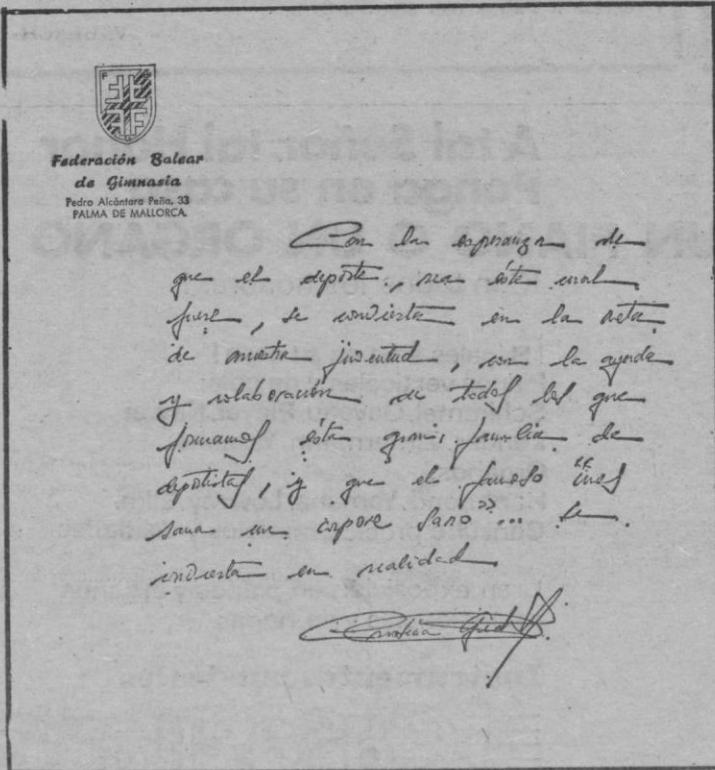 Federación Balear
de Gimnasia
Pedro Alcántara Peña, 33
PALMA DE MALLORCA
Con la esperanza de
que el deporte, sea éste cual
fuere, se convierta en la meta
de nuestra juventud, con la ayuda
y colaboración de todos los que
formamos esta gran familia de
deportistas, y que el famoso "mes
sana in corpore sano"... se
convierta en realidad